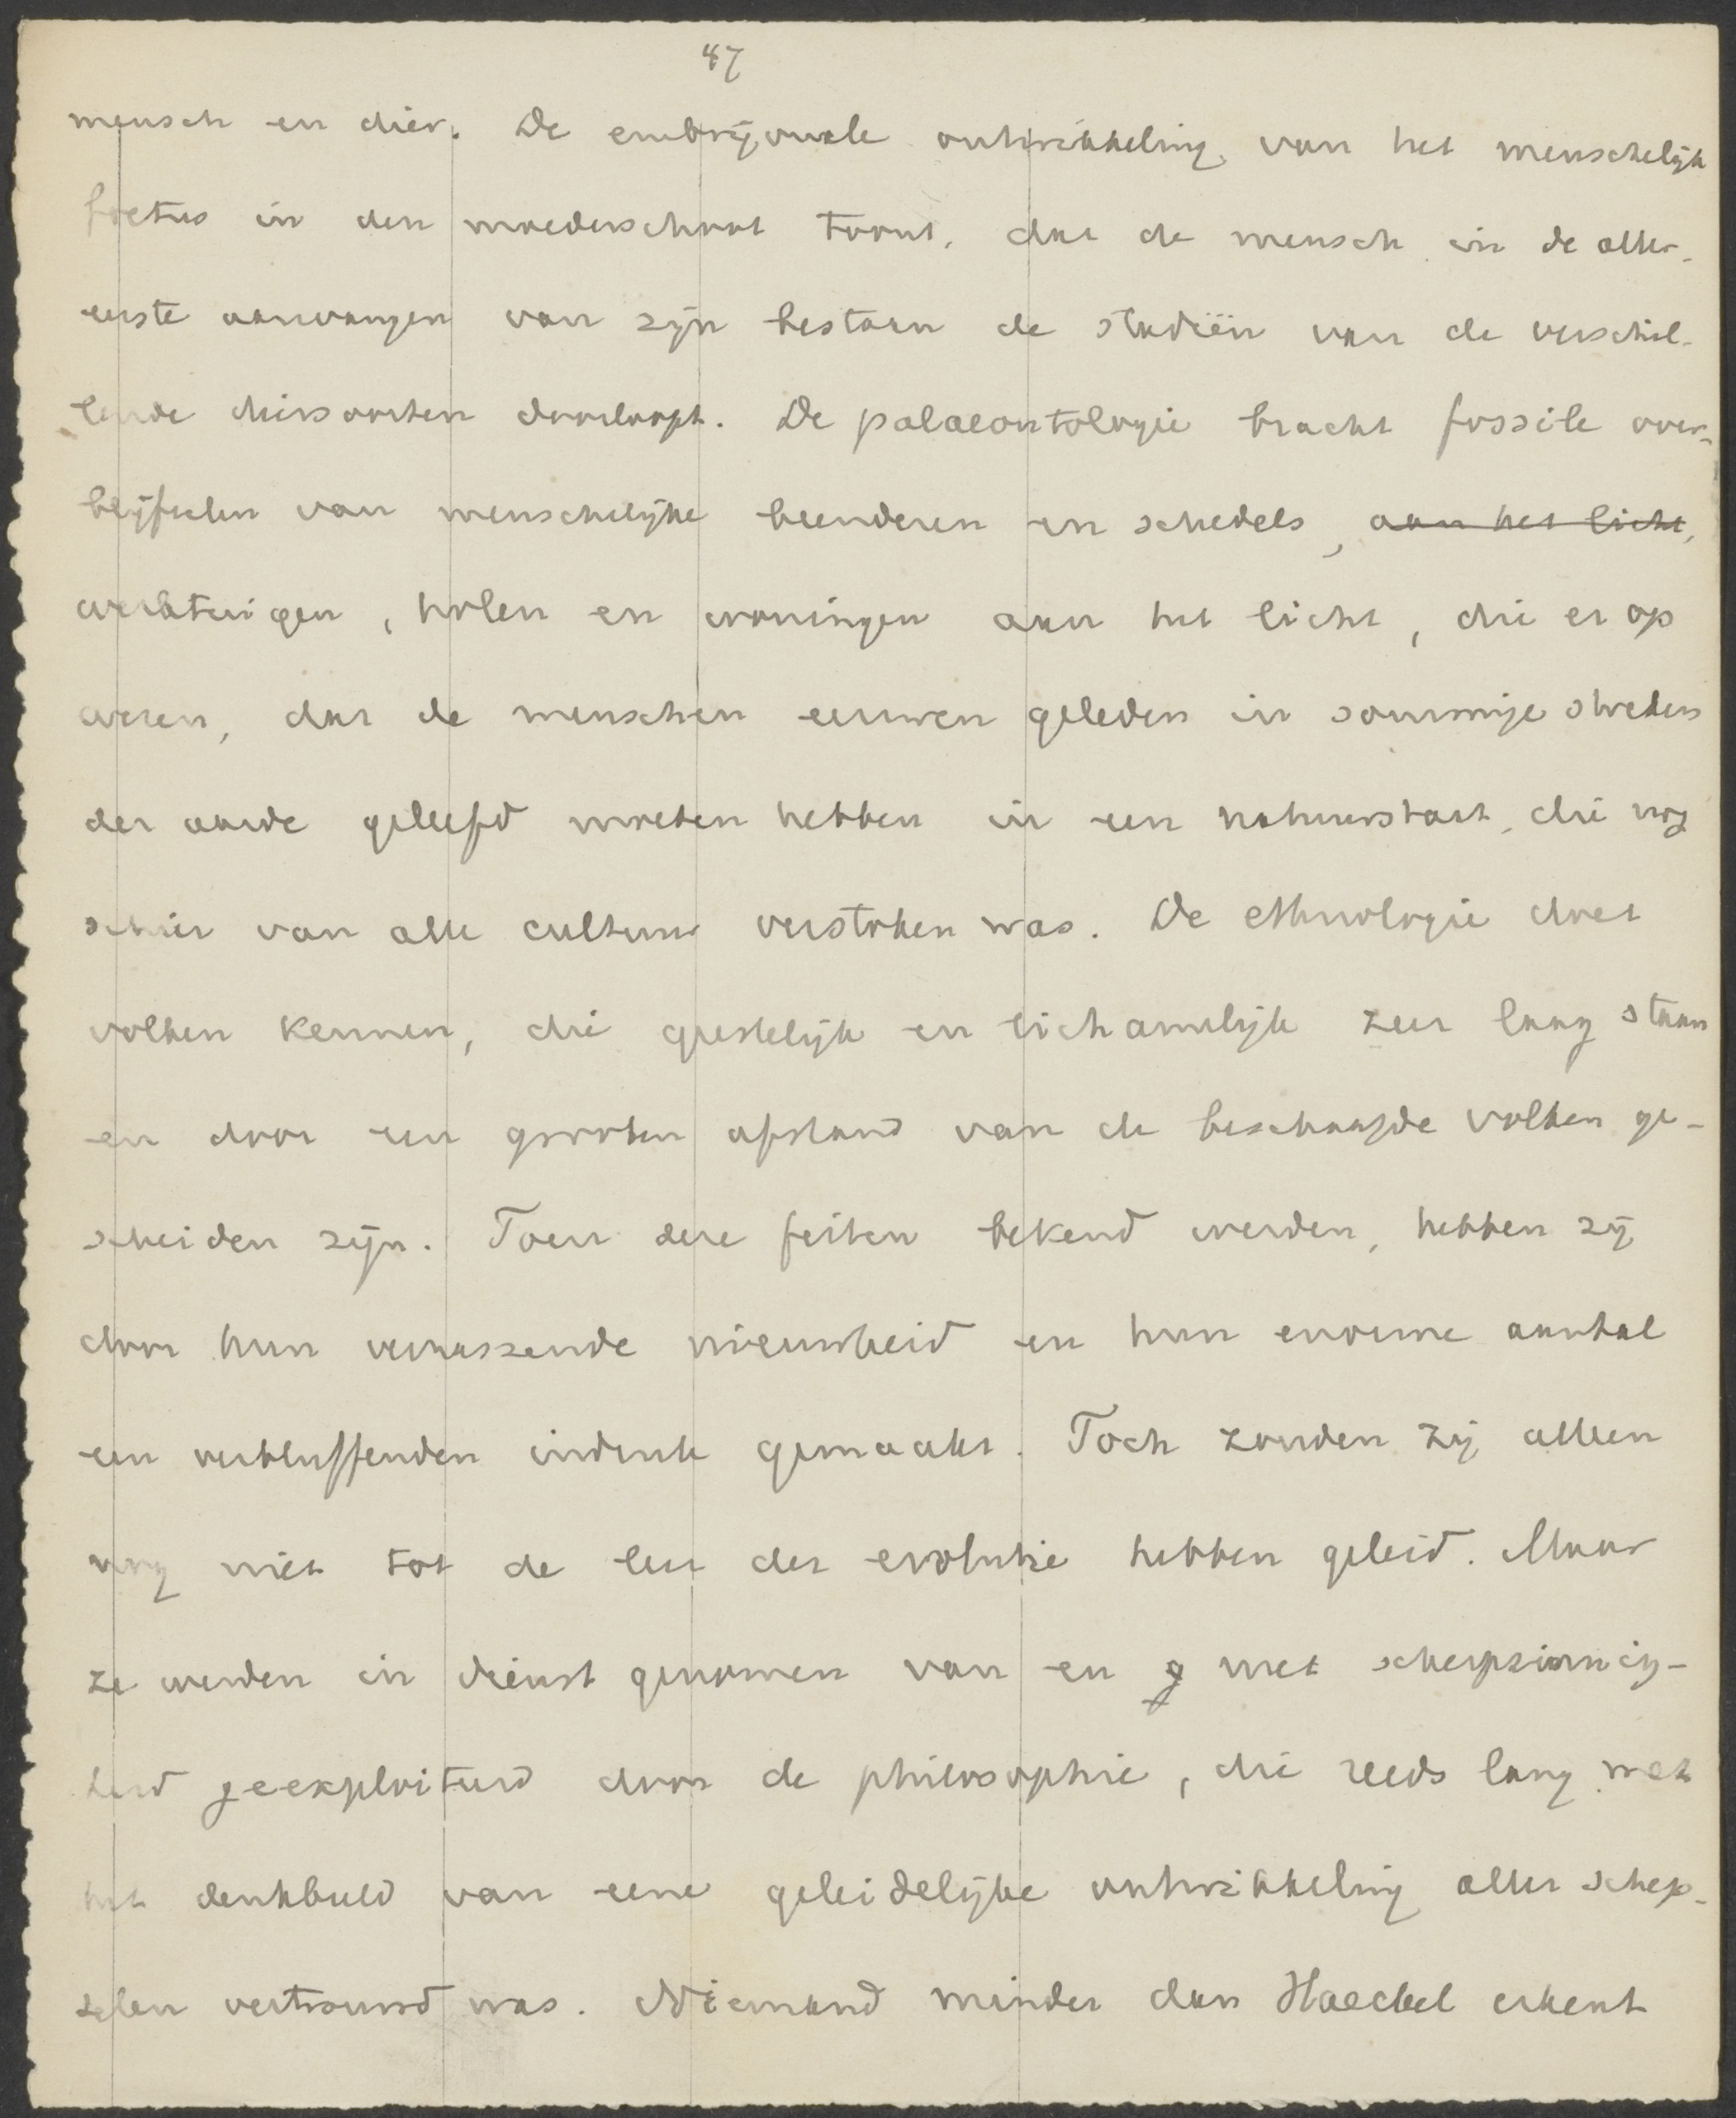 47
mensch en dier. De embryonale ontwikkeling van het menschelijk
foetus in den moederschoot toont, dat de mensch in de aller-
eerste aanvangen van zijn bestaan de stadiën van de verschil-
lende diersoorten doorloopt. De palaeontologie bracht fossile over-
blijfselen van menschelijke beenderen en schedels, aan het licht,
werktuigen, holen en woningen aan het licht, die er op
wezen, dat de menschen eeuwen geleden in sommige streken
der aarde geleefd moeten hebben in een natuurstaat, die nog
schier van alle cultuur verstoken was. De ethnologie doet
volken kennen, die geestelijk en lichamelijk zeer laag staan
en door een grooten afstand van de beschaafde volken ge-
scheiden zijn. Toen deze feiten bekend werden, hebben zij
door hun verrassende nieuwheid en hun enorme aantal
een verbluffenden indruk gemaakt. Toch zouden zij alleen
nog niet tot de leer der evolutie hebben geleid. Maar
ze werden in dienst genomen van en g met scherpzinnig-
heid geexploiteerd door de philosophie, die reeds lang met
het denkbeeld van eene geleidelijke ontwikkeling aller schep-
selen vertrouwd was. Niemand minder dan Haeckel erkent